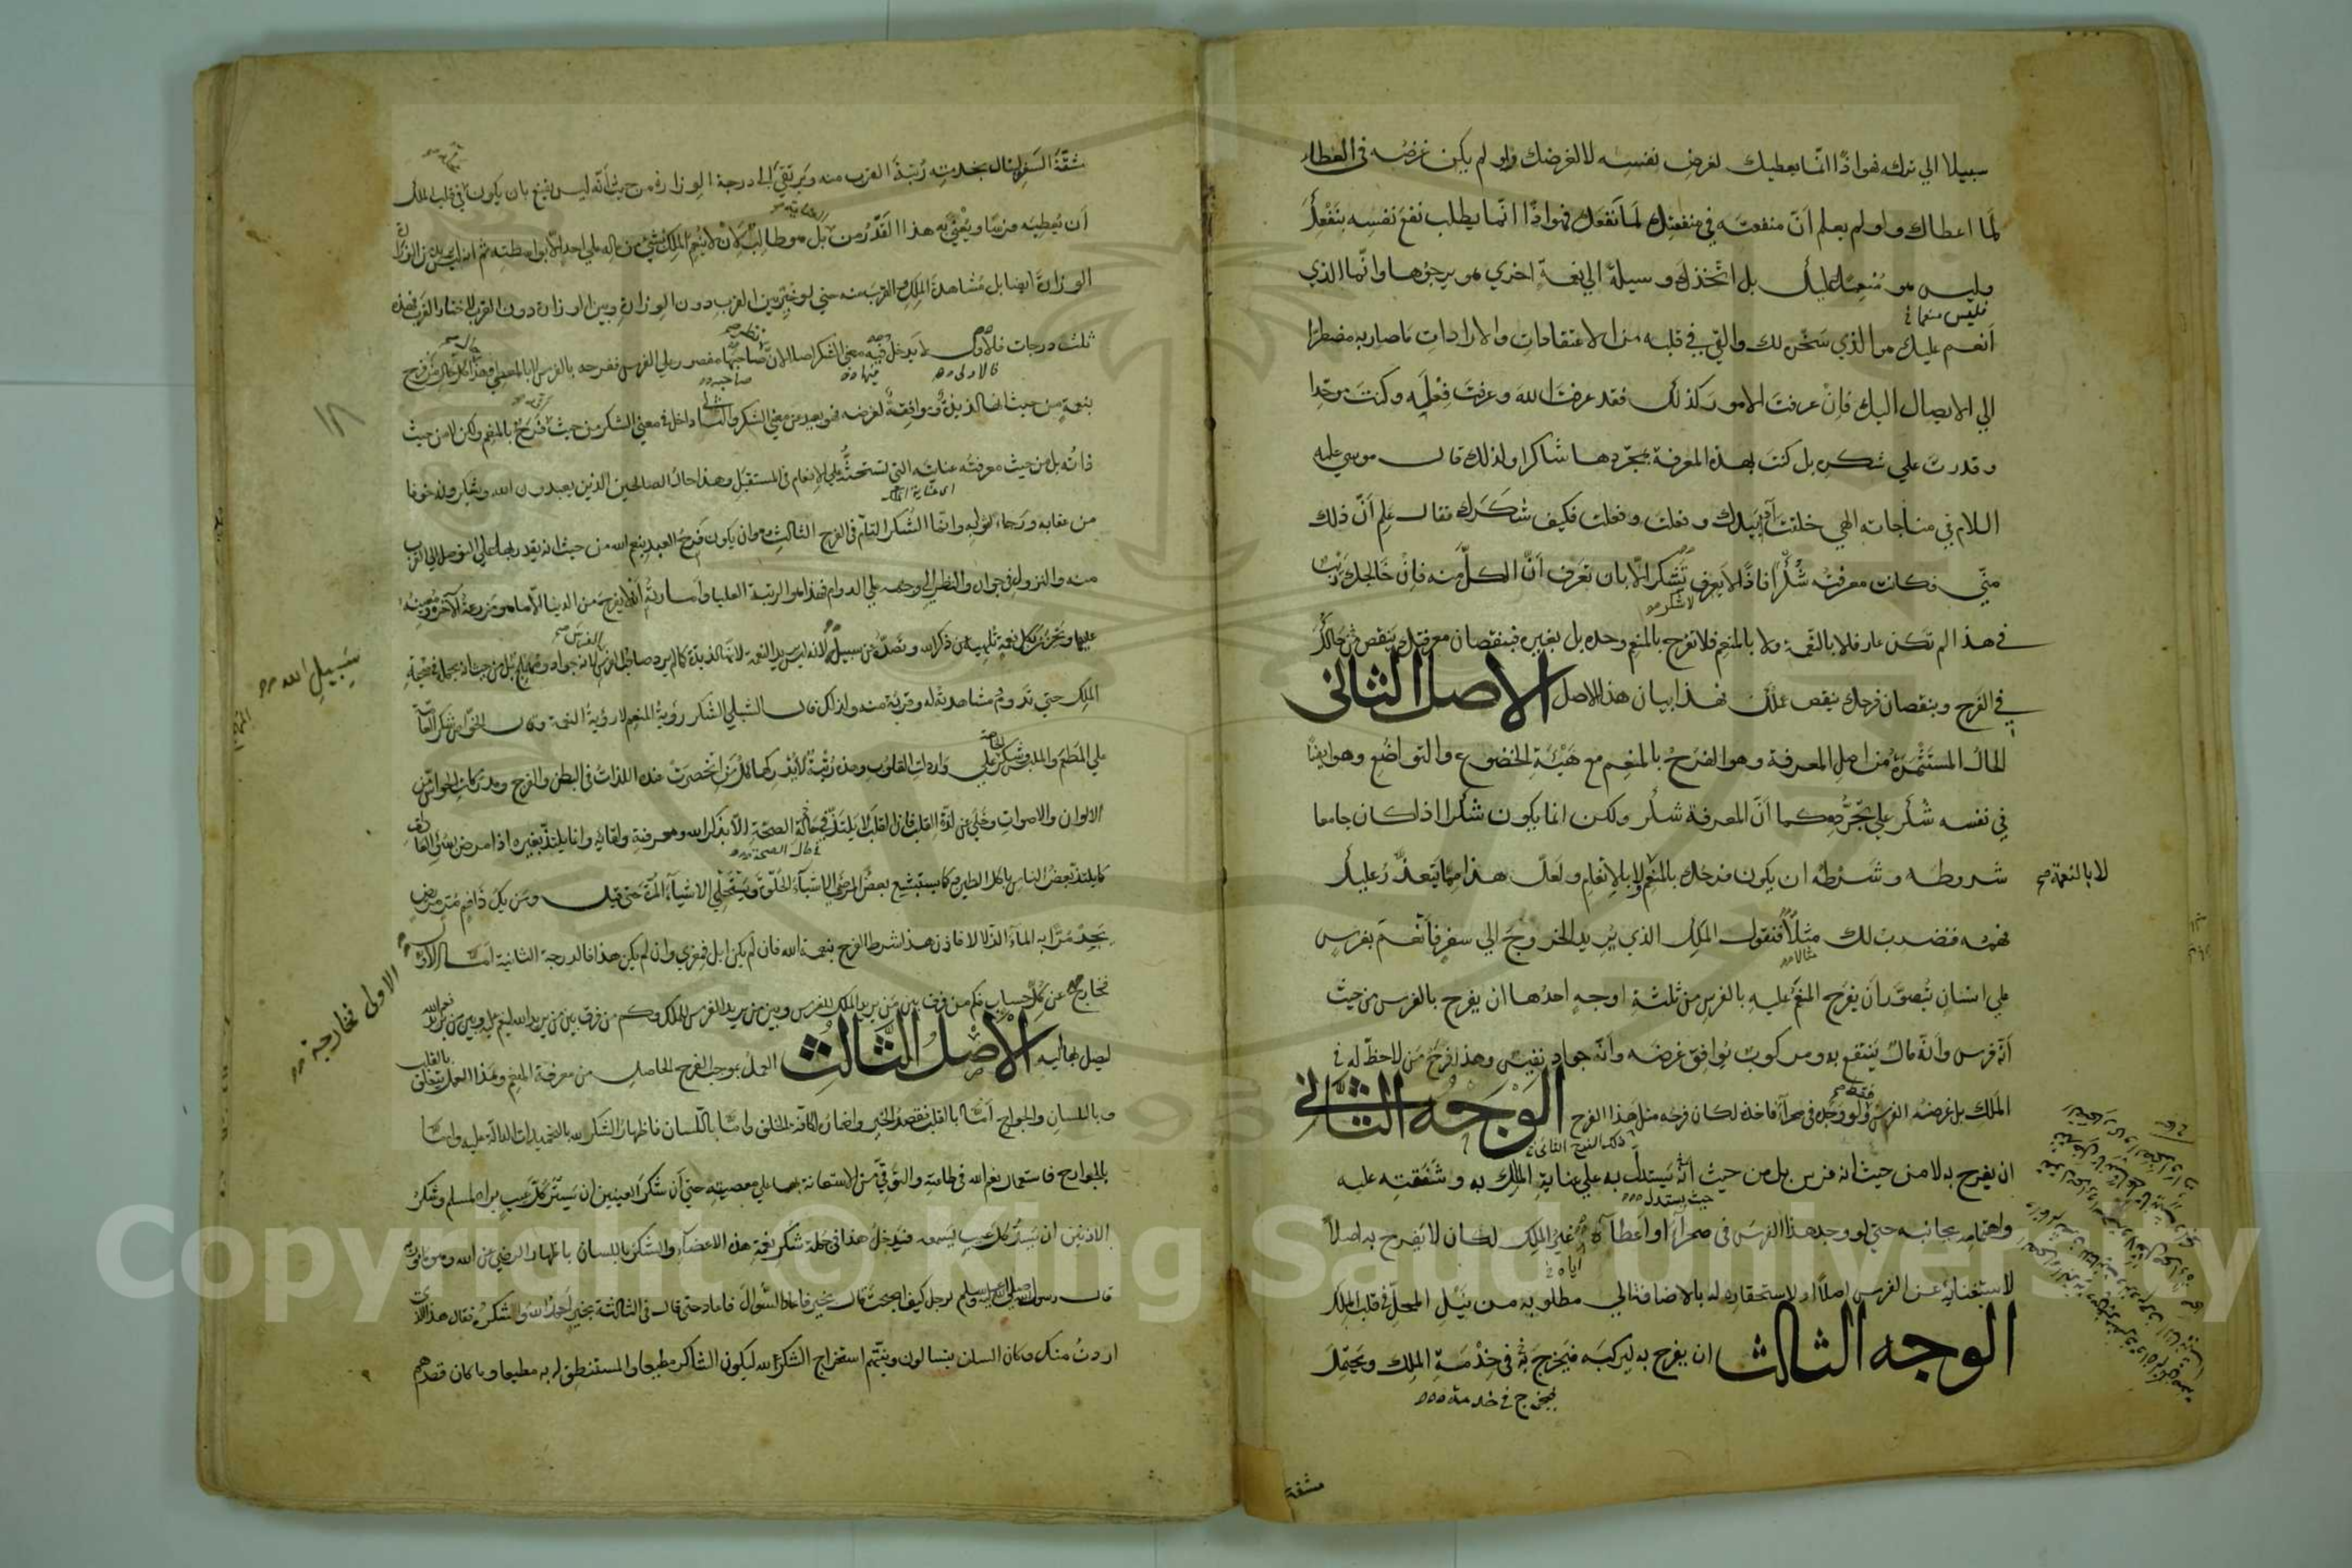 سبيلا الي تركه فهو اذًا انّما يعطيك لغرض نفسه لا لغرضك ولو لم يكن غرضه في العطاء
لَمَا اعطاك ولو لم يعلم أنّ منفعته في منفعتك لَمَا نفعك فهو اذًا انّما يطلب نفع نفسه بنفعك
وليس هو منعمًا عليك بل اتّخذك وسيلة الي نعمة اخري هو يرجوها وانّما الذي
فليس منعما
أنعم عليك هو الذي سخّره لك والقي في قلبه من الاعتقادات والارادات ما صار به مضطرًا
الي الايصال اليك فإنْ عرفت الامور كذلك فقد عرفت الله وعرفت فعله وكنت موحّدا
وقدرت علي شكره بل كنت بهذه المعرفة بمجرّدها شاكرا ولذلك قال موسي عليه
السلام في مناجاته الهي خلقت آدم بيدك وفعلت وفعلت فكيف شكرك فقال علم أنّ ذلك
منّي فكانت معرفته شكرًا فاذًا لا يعرف تشكر الّا بان تعرف أنّ الكلّ منه فإنْ خالجك ريب
لا شكر
في هذا لم تكن عارفا لا بالنعمة ولا بالمنعم فلا تفرح بالمنعم وحده بل بغيره فبنقصان معرفتك ينقص حالك
في الفرح وبنقصان فرحك ينقص عملك فهذا بيان هذا الاصل الاصل الثاني
الحال المستثمرة من اصل المعرفة وهو الفرح بالمنعم مع هيئة الخضوع والتواضع وهو ايضًا
في نفسه شكر علي تجرّده كما أنّ المعرفة شكر ولكن انما يكون شكرا اذا كان جامعا
شروطه وشرطه ان يكون فرحك بالمنعم ولا بالإنعام ولعلّ هذا ممّا يتعذّر عليك
لا بالنعمة صح
فهمه فنضرب لك مثلًا فنقول الملك الذي يريد الخروج الي سفر فأنعم بفرس
مثالا
علي انسان يتصوّر أن يفرح المنعم عليه بالفرس من ثلثة اوجه احدها ان يفرح بالفرس من حيث
أنّه فرس وأنّه مال ينتفع به ومركوب يوافق غرضه وأنّه جواد نفيس وهذا فرح من لا حظّ له في
الملك بل غرضه الفرس ولو وجده في صحراء فاخذه لكان فرحه مثل هذا الفرح الوجه الثاني
فقط صح
ان يفرح به لا من حيث انه فرس بل من حيث أنّه يستدلّ به علي عناية الملك به وشفقته عليه
حيث يستدل
واهتمامه بجانبه حتي لو وجد هذا الفرس في صحراء او اعطاه غير الملك لكان لا يفرح به اصلاً
اياه
لاستغنائه عن الفرس اصلًا او لاستحقاره له بالاضافة الي مطلوبه من نيل المحلّ في قلب الملك
الوجه الثالث ان يفرح به ليركبه فيخرج به في خدمة الملك ويحتمل
فيخرج في خدمة
مشقة
مشقّة السفر لينال بخدمته رتبة القرب منه ويرتقي الي درجة الوزارة من حيث أنّه ليس يقنع بان يكون في قلب الملك
أن يعطيه فرسًا ويعتني به هذا القدر من بل هو طالب لان لا ينعم الملك بشيء من ماله علي احد الّا بواسطته ثم انه ليس يريد من الوزارة
الوزارة ايضا بل مشاهدة الملك والقرب منه حتي لو خيّر بين القرب دون الوزارة وبين الوزارة دون القرب لاختار القرب فهذه
ثلث درجات فالاول لا يدخل فيه معني الشكر اصلا لانّ صاحبها مقصور علي الفرس ففرحه بالفرس لا بالمعطي وهذا حال كل من فرح
فالاولى
فيها
صاحبه
بنعمة من حيث انها لذيذة وموافقة لغرضه فهو بعيد عن معني الشكر والثاني داخل في معني الشكر من حيث فرح بالمنعم ولكن لا من حيث
ذاته بل من حيث معرفته عنايته التي تستحثّه علي الانعام في المستقبل وهذا حال الصالحين الذين يعبدون الله ويشكرونه خوفا
اى عناية الملك
من عقابه ورجاء لثوابه وانّما الشكر التامّ في الفرح الثالث وهو ان يكون فرح العبد بنعم الله من حيث انه يقدر بها علي التوصل الي القرب
منه والنزول في جواره والنظر الي وجهه علي الدوام فهذا هو الرتبة العليا وامارته أن لا يفرح من الدنيا الّا بما هو مزرعة الآخرة ومعينه
عليها ويحزن بكل نعمة تلهيه عن ذكر الله وتصدّه عن سبيله لانه ليس يريد النعمة لانها لذيذة كما لم يرد صاحب الفرس لانه جواد ومهملج بل من حيث انه يحمله في صحبة
الفرس صح
سبيلِ الله
الملك حتي تدوم مشاهدته له وقربه منه ولذلك قال الشبلي الشكر رؤية المنعم لا رؤية النعمة وقال الخوّاص شكر العامّة
علي المطعم والملبس وشكر الخاصة علي واردات القلوب وهذه رتبة لا يدركها كل من انحصرت عنده اللذات في البطن والفرج ومدركات الحواسّ من
الالوان والاصوات وخلي عن لذّة القلب فان القلب لا يلتذّ في حالة الصحّة الّا بذكر الله ومعرفته ولقائه وانما يلتذّ بغيره اذا مرض بسوء العادات
في حال الصحة
كما يلتذّ بعض الناس باكل الطين وكما يستبشع بعض المرضي الاشياء الحلوة ويستحلي الاشياء المرّة حتي قيل ومن يك ذا فم مرّ مريض
يجد مرًّا به الماء الزلالا فاذن هذا شرط الفرح بنعمة الله فان لم يكن ابل فمعزي وان لم يكن هذا فالدرجة الثانية امّا الاولي
الاولى فخارجة
فخارج عن كلّ حساب فكم من فرق بين من يريد الملك للفرس وبين من يريد الفرس للملك وكم من فرق بين من يريد الله لينعم عليه وبين من يريد نعم الله
ليصل بها اليه الاصل الثالث العمل بموجب الفرح الحاصل من معرفة المنعم وهذا العمل يتعلّق بالقلب
وباللسان والجوارح امّا بالقلب فقصد الخير واضماره لكافّة الخلق وامّا باللسان فاظهار الشكر لله بالتحميدات الدالّة عليه وامّا
بالجوارح فاستعمال نعم الله في طاعته والتوقّي من الاستعانة بها علي معصيته حتي أن شكر العينين ان يستر كلّ عيب يراه لمسلم وشكر
الاذنين ان يستر كلّ عيب يسمعه فيدخل هذا في جملة شكر نعمة هذه الاعضاء والشكر باللسان باظهار الرضي عن الله وهو مأمور به
قال رسول الله صلي الله عليه وسلم لرجل كيف اصبحت قال بخير فاعاد السؤال فاعاد حتي قال في الثالثة بخير أحمد الله والشكره فقال هذا الذي
اردت منك وكان السلف يتسالون ونيّتهم استخراج الشكر لله ليكون الشاكر مطيعا والمستنطق له به مطيعا وما كان قصدهم
١٨
Copyright © King Saud University